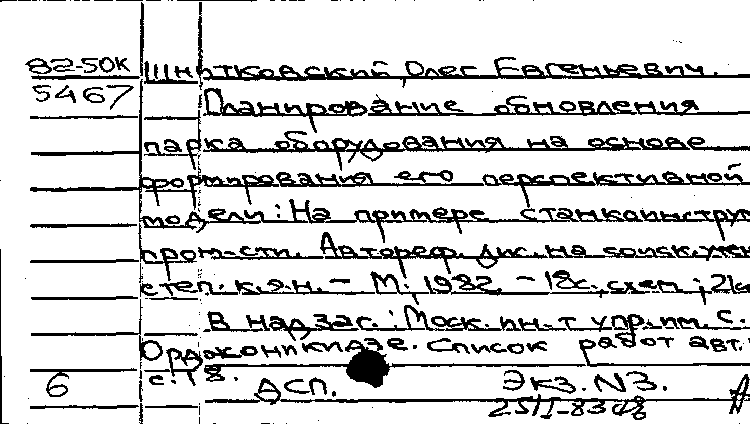 82-50К Шнитковский, Олег Евгеньевич.
5467 Планирование обновления
парка оборудования на основе
формирования его перспективной
модели: На примере станкоинстру
пром-сти. Автореф. дис. на соиск. учен
степ. к.э.н. – М., 1982. – 18с., схем; 21с
В надзаг.: Моск. ин-т упр. им. С.
Орджоникидзе. Список работ авт.:
с. 18.
6 ДСП. Экз. N3.
25/I-83